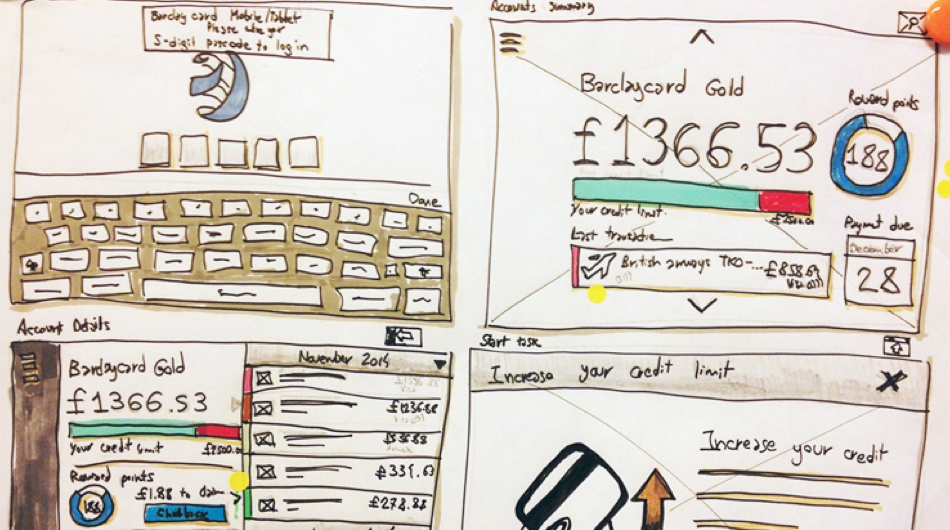 Barclay card Mobile/Tablet
Please enter your
5-digit passcode to log in
Done
Accounts summary
Barclaycard Gold
£1366.53
Your credit limit
Reward points
188
Last transaction
British airways TRO-...
£858.69
Payment due
December
28
Account Details
Barclaycard Gold
£1366.53
Your credit limit
£2500.00
Reward points
188
£1.88 to claim
November 2014
£331.63
£278.88
Start task
Increase your credit limit
X
Increase your credit